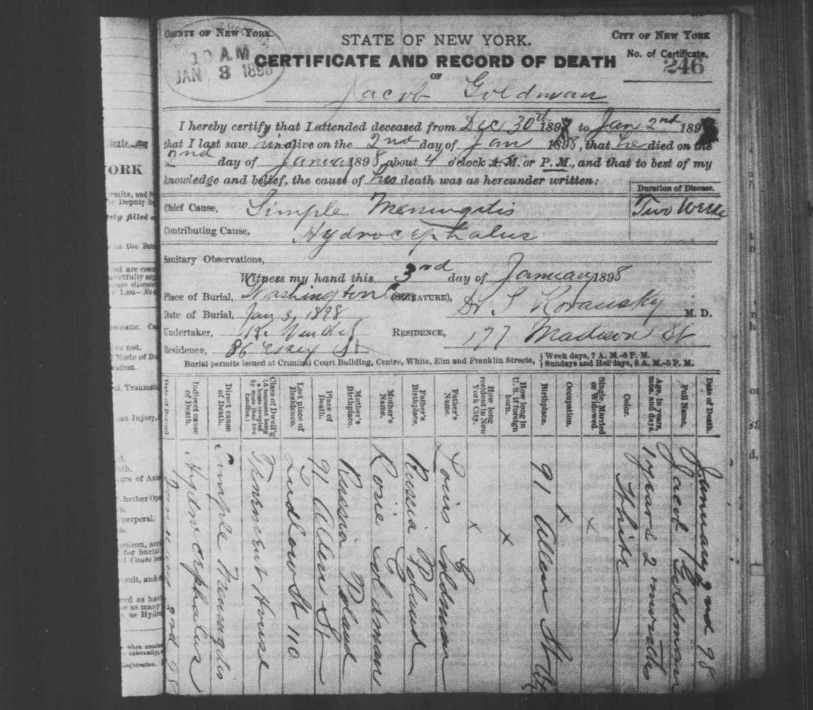 COUNTY OF NEW YORK.
10 AM
JAN 3 1898
STATE OF NEW YORK.
CITY OF NEW YORK
No. of Certificate,
246
CERTIFICATE AND RECORD OF DEATH
OF
Jacob Goldman
I hereby certify that I attended deceased from Dec 30th 1897 to Jan 2nd 1898
that I last saw him alive on the 2nd day of Jan 1898, that he died on the
2nd day of January 1898, about 4 o'clock A.M. or P.M., and that to best of my
knowledge and belief, the cause of his death was as hereunder written:
Duration of Disease.
Chief Cause, Simple Meningitis Two Weeks
Contributing Cause, Hydrocephalus
Sanitary Observations,
Witness my hand this 3rd day of January 1898
Place of Burial, Washington Cem (SIGNATURE), Dr. M. D.
Date of Burial, Jan 3, 1898
Undertaker, RESIDENCE, 177 Madison St
Residence, 86 Essex St
Burial permits issued at Criminal Court Building, Centre, White, Elm and Franklin Streets, Week days, 7 A. M.–6 P. M.
Sundays and Holidays, 8 A. M.–5 P. M.
Date of Death. January 2nd 98
Full Name. Jacob Goldman
Age, in years, mos and days. 1 year 2 months
Color. White
Single, Married or Widowed x
Occupation. x
Birthplace. 91 Allen St
How long in U. S. if foreign born. x
How long resident in New York City. x
Father's Name. Louis Goldman
Father's Birthplace. Russia Poland
Mother's Name. Rosie Goldman
Mother's Birthplace. Russia Poland
Place of Death. 91 Allen St
Last place of Residence. Ludlow St 110
Class of Dwell'g Tenement House
Direct cause of Death. Simple Meningitis
Indirect cause of Death. Hydrocephalus
January 2nd 98